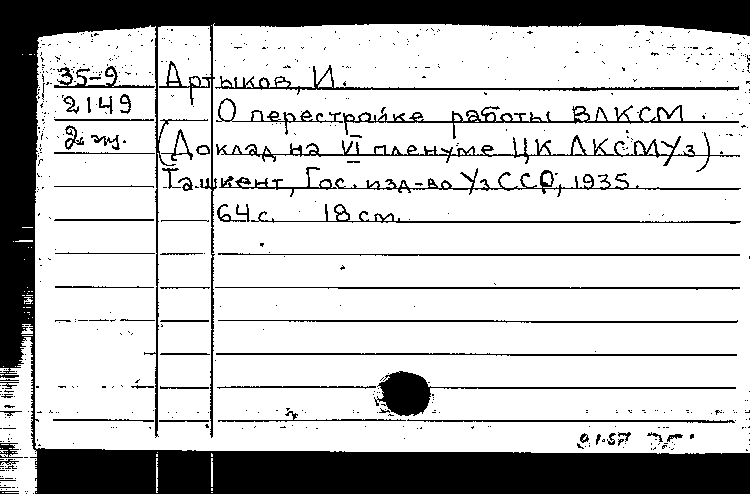 35-9 Артыков, И.
2149 О перестройке работы ВЛКСМ.
2 экз. (Доклад на VI пленуме ЦК ЛКСМУз).
Ташкент, Гос. изд-во УзССР, 1935.
64 с. 18 см.